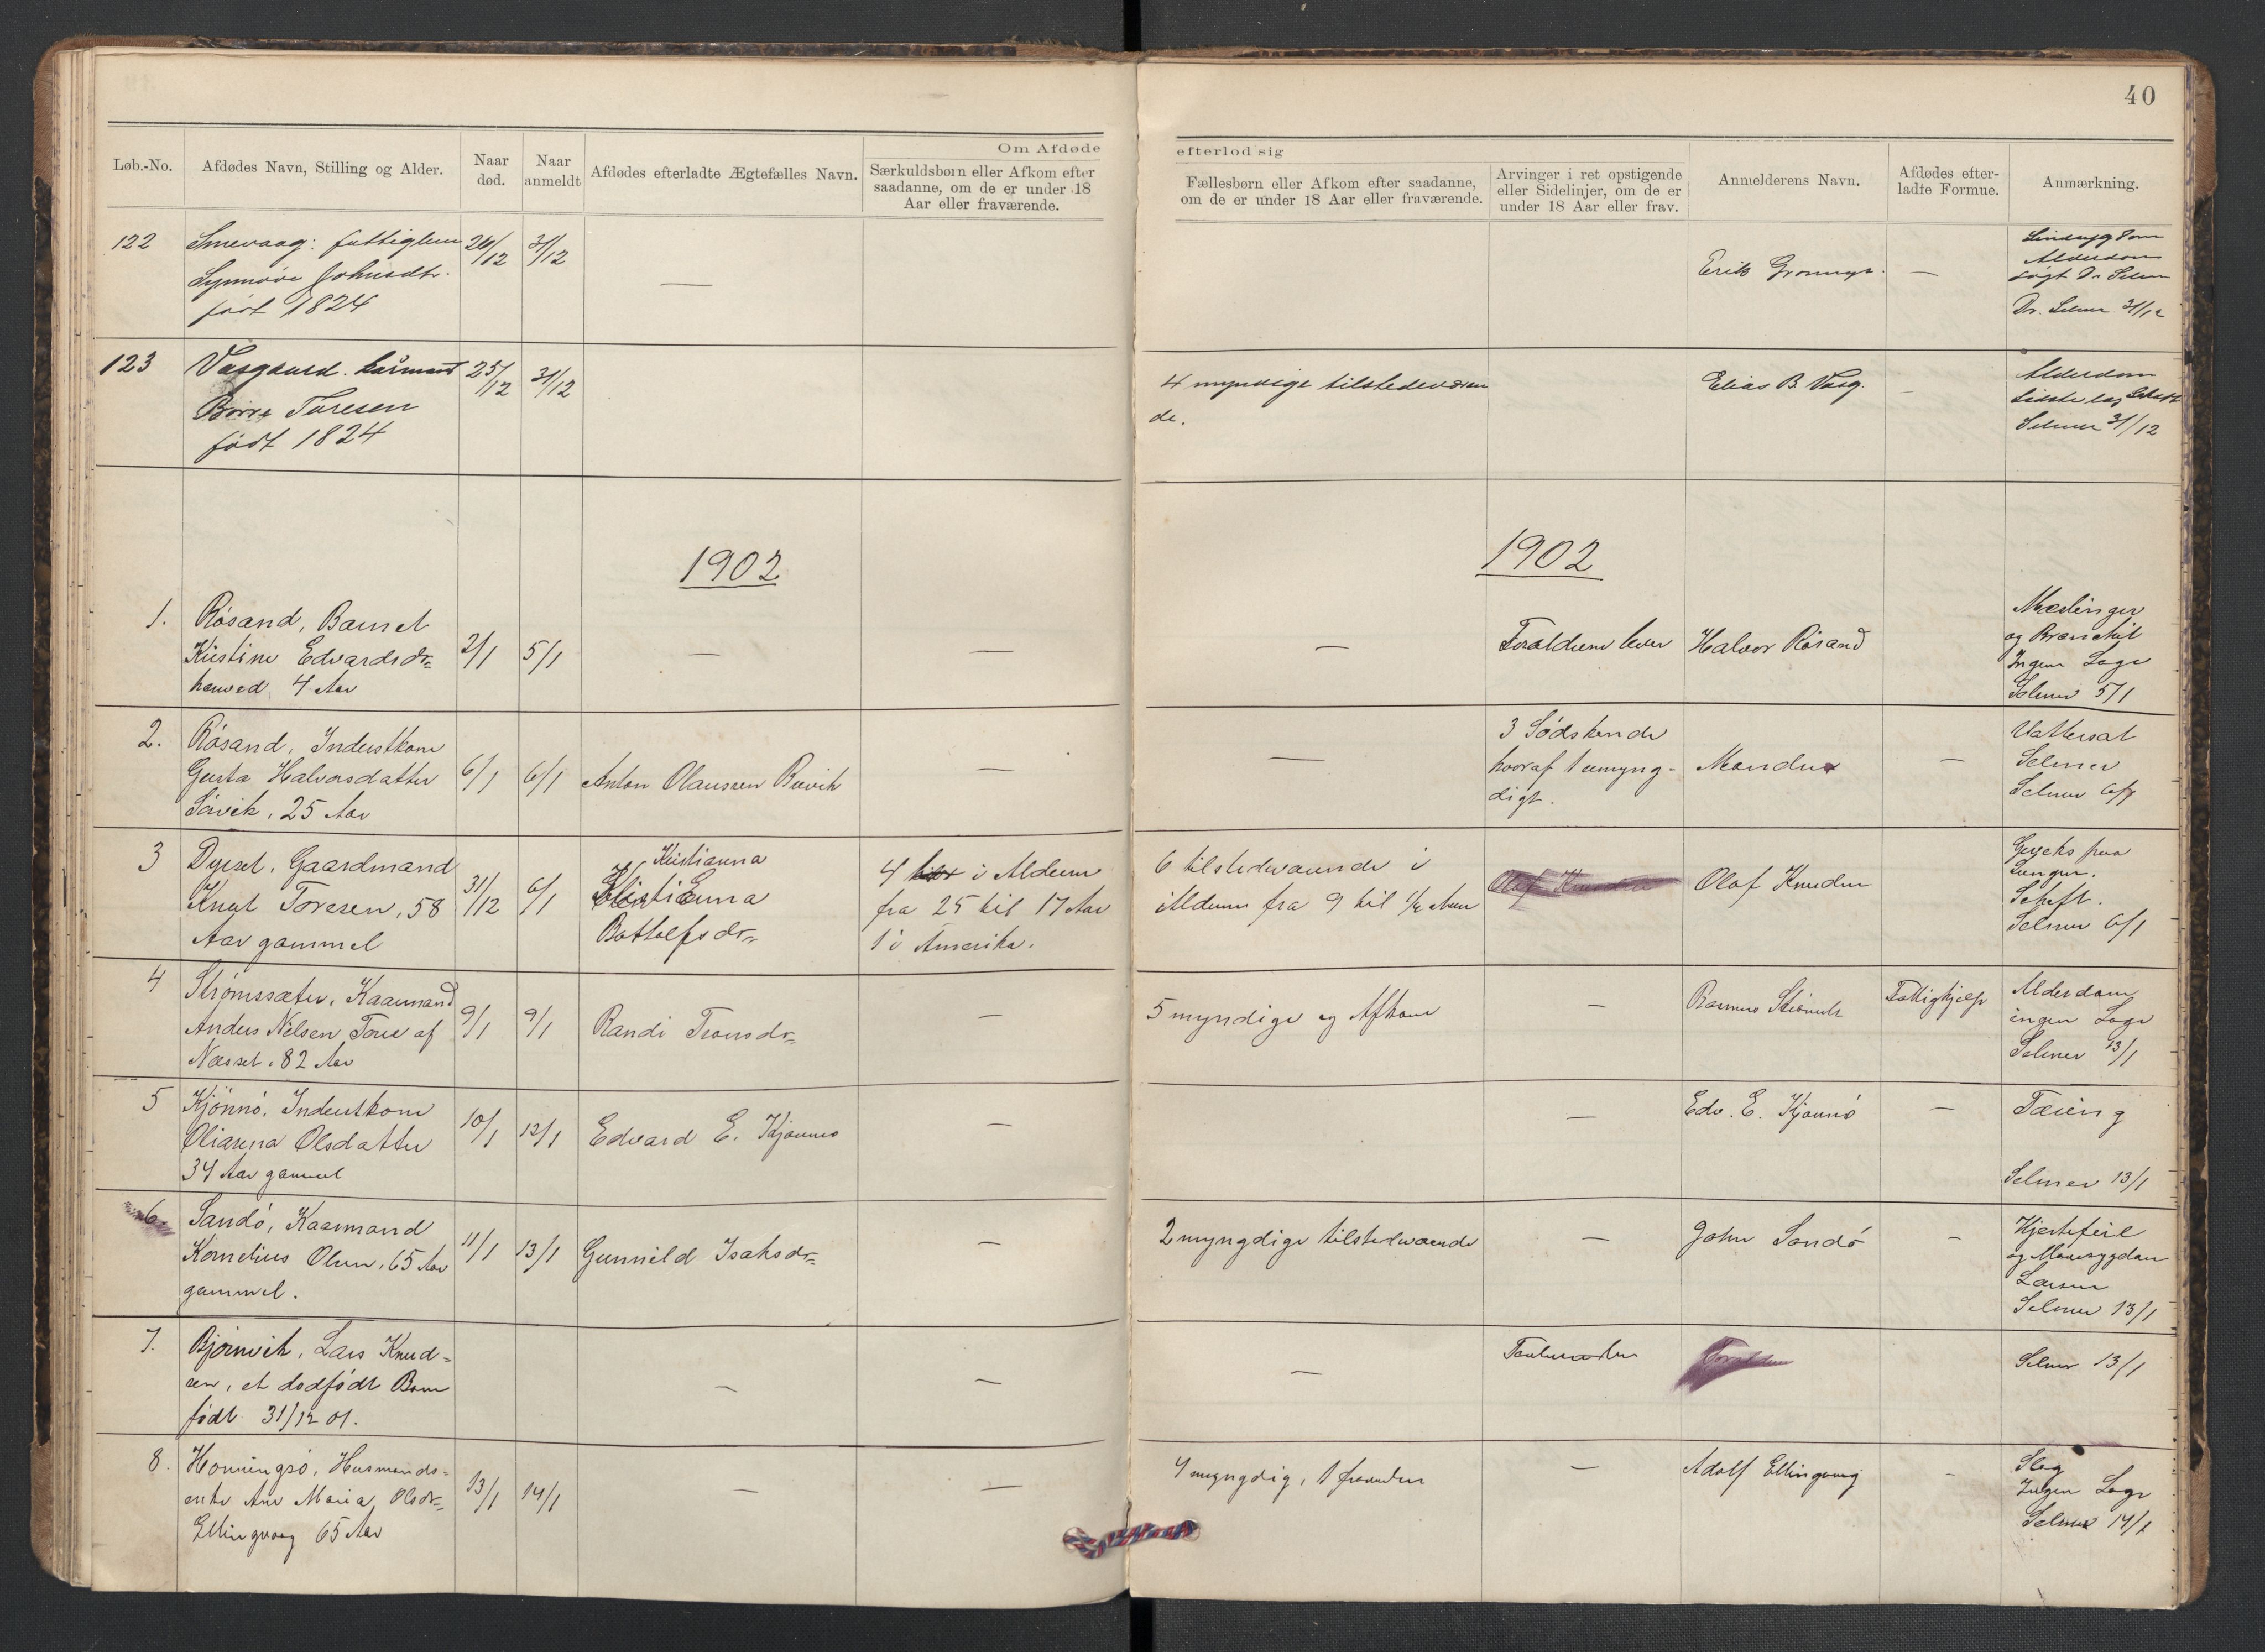 40
Om Afdøde
efterlod sig
Løb.-No.
Afdødes Navn, Stilling og Alder.
Naar død.
Naar anmeldt
Afdødes efterladte Ægtefælles Navn.
Særkuldsbørn eller Afkom efter
saadanne, om de er under 18
Aar eller fraværende.
Fællesbørn eller Afkom efter saadanne,
om de er under 18 Aar eller fraværende.
Arvinger i ret opstigende
eller Sidelinjer, om de er
under 18 Aar eller frav.
Anmelderens Navn.
Afdødes efter-
ladte Formue.
Anmærkning.
122
Smevaag: fattiglem
Synnøve Johnsdtr.
født 1824
26/12
31/12
—
Erik
—
Alderdom
søgt Dr Selmer
Dr. Selmer 31/12
123
Vaagaard. kårmand
Børre Turesen
født 1824
25/12
31/12
4 myndige tilstedeværen
de.
Elias B. Vaag.
Alderdom
Selmer 31/12
1902
1902
1.
Røsand, Barnet
Kristine Edvardsdr
4 Aar
2/1
5/1
—
—
—
Forældrene lever
Halvor Røsand
Meslinger
og Bronchit
Ingen Læge
Selmer 5/1
2.
Røsand, Inderstkone
Gusta Halvorsdatter
Sivik, 25 Aar
6/1
6/1
Anton Olaussen Bævik
—
—
3 Sødskende
hvoraf 1 umyng-
digt.
Manden
—
Vattersot
Selmer
Selmer 6/1
3
Dyrset, Gaardmand
Knut Toresen, 58
Aar gammel
31/12
6/1
Kristianna
Bottolfsdr
4 i Alderen
fra 25 til 17 Aar
1 i Amerika.
6 tilstedeværende i
Alderen fra 9 til 1/2 Aar
Olaf Knudsen
Olaf Knudsen
Lungen.
Scheft.
Selmer 6/1
4
Strømssæter, Kaarmand
Anders Nilsen Tore af
Næsset, 82 Aar
9/1
9/1
Randi Tronsdr
—
5 myndige og Afkom
—
Rasmus
Fattighjelp
Alderdom
ingen Læge
Selmer 13/1
5
Kjönnö, Inderstkone
Olianna Olsdatter
34 Aar gammel
10/1
12/1
Edvard E. Kjönnö
—
—
Edv. E. Kjönnö
—
Tæring
Selmer 13/1
6.
Sandö, Kaarmand
Kornelius Olsen, 65 Aar
gammel.
11/1
13/1
Gunnild Isaksdr
—
2 myngdige tilstedeværende
—
John Sandö
—
Hjertefeil
og Mavesygdom
Larsen
Selmer 13/1
7.
Bjørnvik, Lars Knud-
sen, et dødfødt Barn
født 31/12 01.
—
—
—
Forældrene
Selmer 13/1
8.
Honningsö, Husmands-
enke Ane Maria Olsdr
Ellingvaag 65 Aar
13/1
14/1
—
—
4 myngdig, 1
—
Adolf Ellingvaag
—
Slag
Ingen Læge
Selmer 14/1